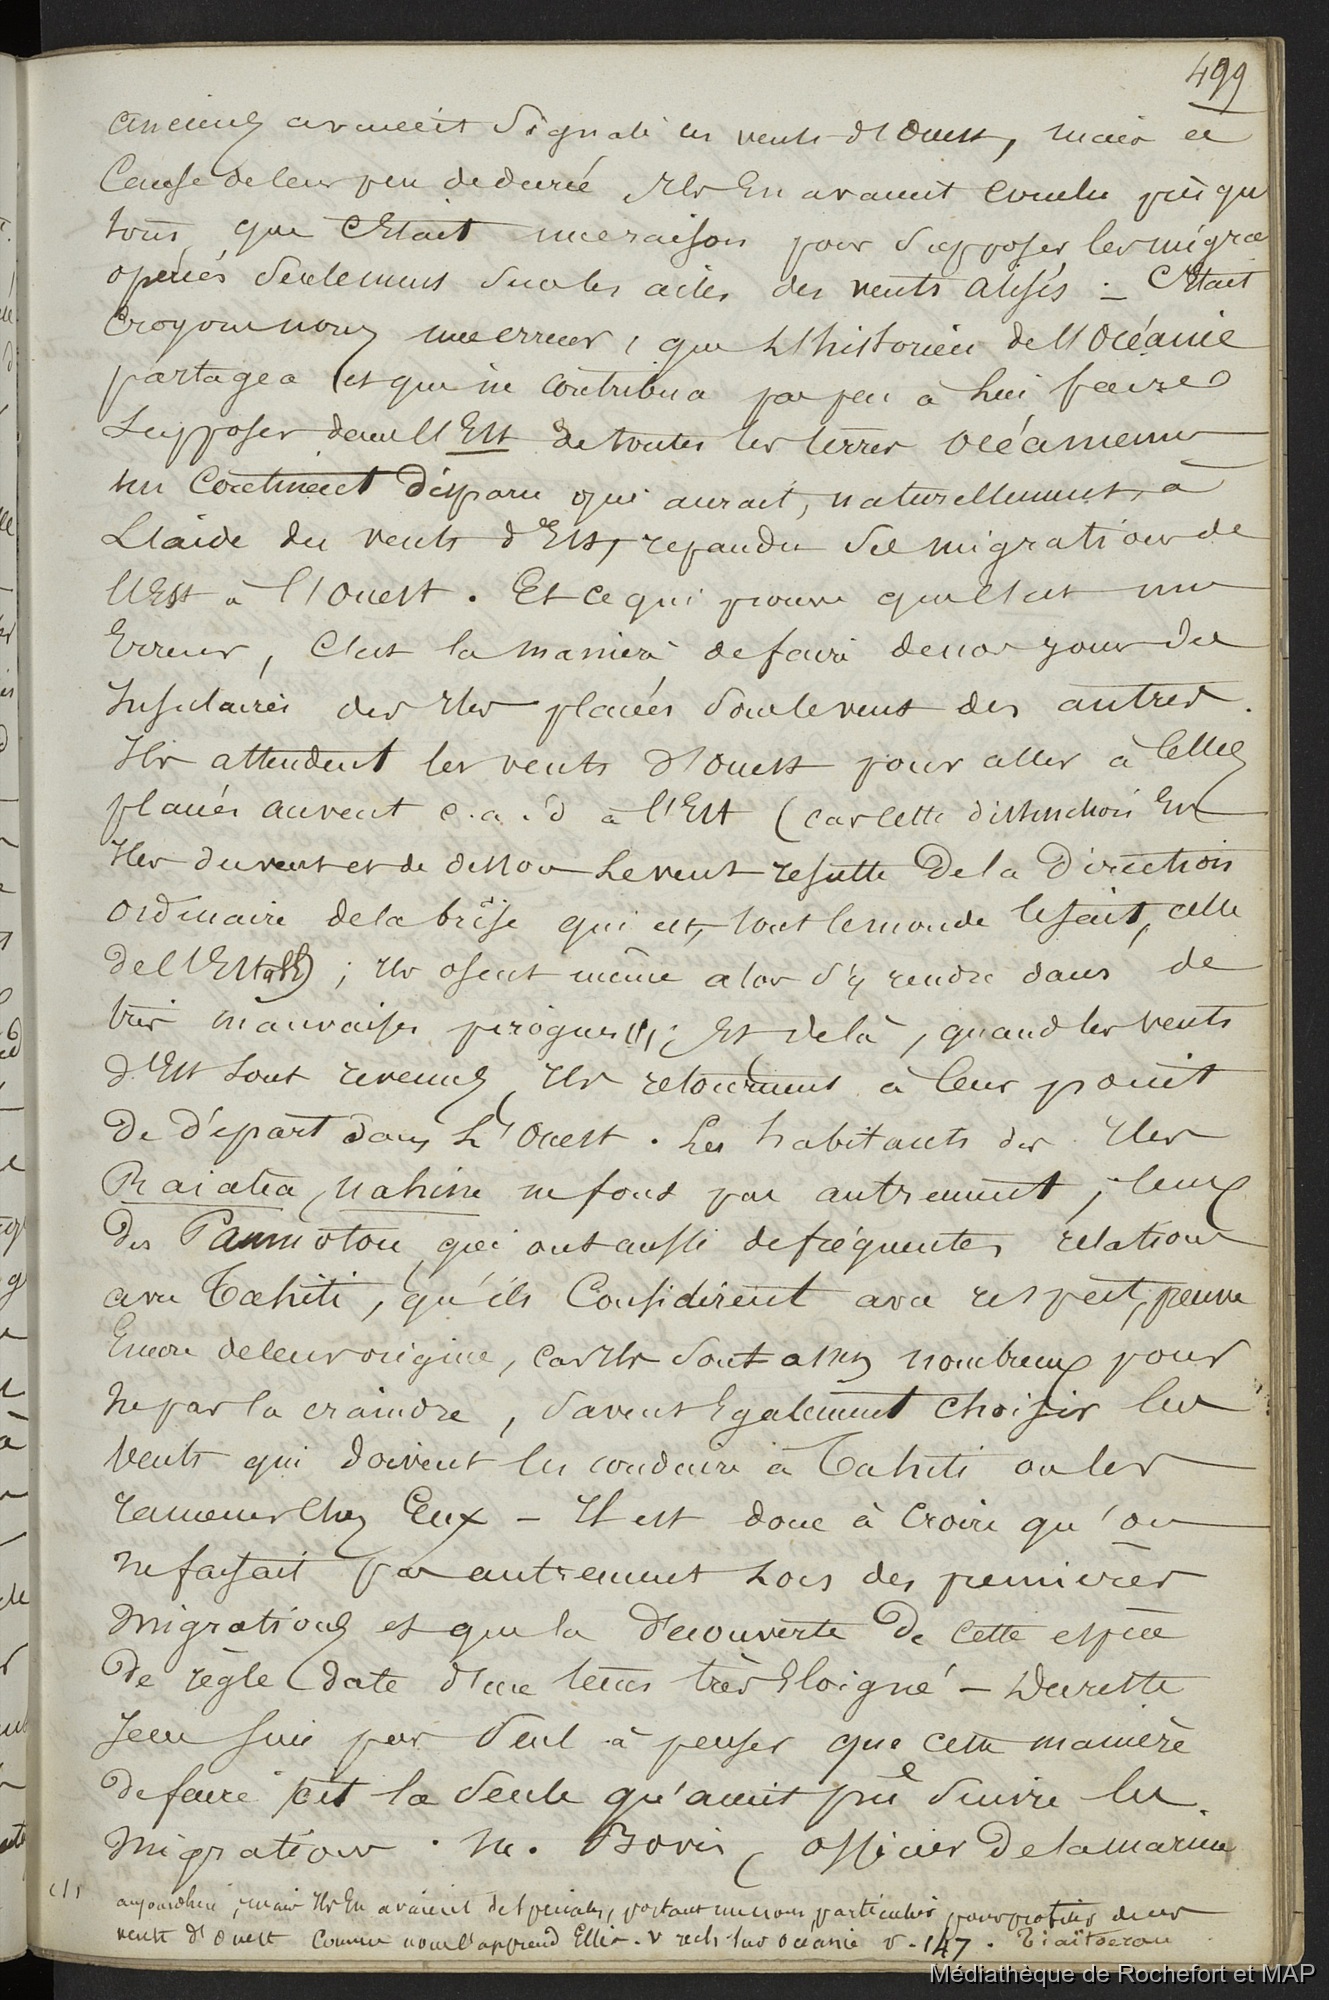 499
anciens avaient signalé les vents d'Ouest, mais à
Cause de leur peu de durée, ils En avaient conclu presque
tous, que C'était une raison pour supposer les migra
opérées seulement sur les ailes des vents alisés : — C'était
Croyons nous, une erreur, que L'historien de l'Océanie
partagea et qui ne Contribua pas peu à lui faire
supposer dans l'Est de toutes les terres océaniennes
un Continent disparu qui aurait, naturellement, à
L'aide des vents d'Est, répandu ses migrations de
l'Est à l'Ouest. Et ce qui prouve que c'est une
Erreur, C'est la manière de faire de nos jours des
Insulaires des Iles placées sous le vent des autres.
Ils attendent les vents d'Ouest pour aller à Celles
placées au vent c.a.d à l'Est (car cette distinction En
Iles du vent et de dessous Le vent résulte De la Direction
ordinaire de la brise qui est, tout le monde le sait, celle
de l'Est ; Ils osent même alors s'y rendre dans de
très mauvaises pirogues (1) ; Et de là, quand les vents
d'Est sont revenus, Ils retournent à leur point
De départ dans L'Ouest. Les habitants des Iles
Raiatea, Huahine ne font pas autrement ; ceux
Des Paumotou, qui ont aussi de fréquentes relations
avec Tahiti, qu'ils Considèrent avec respect, preuve
Encore de leur origine, car Ils sont assez nombreux pour
ne pas la craindre, savent Egalement choisir les
vents qui doivent les conduire à Tahiti ou les
ramener Chez Eux — Il est donc à Croire qu'on
ne faisait pas autrement Lors des premières
migrations et que la Découverte De cette espèce
De règle date d'un tems très Eloigné — Du reste
Je ne suis pas seul à penser que cette manière
De faire est la seule qu'aient pu suivre les
Migrations. M. Bovis, officier De la marine
(1) aujourd'hui ; mais Ils En avaient de spéciales, portant un nom particulier, pour profiter de ces
vents d'Ouest Comme nous l'apprend Ellis. v rech sur Océanie v. 147.
Médiathèque de Rochefort et MAP